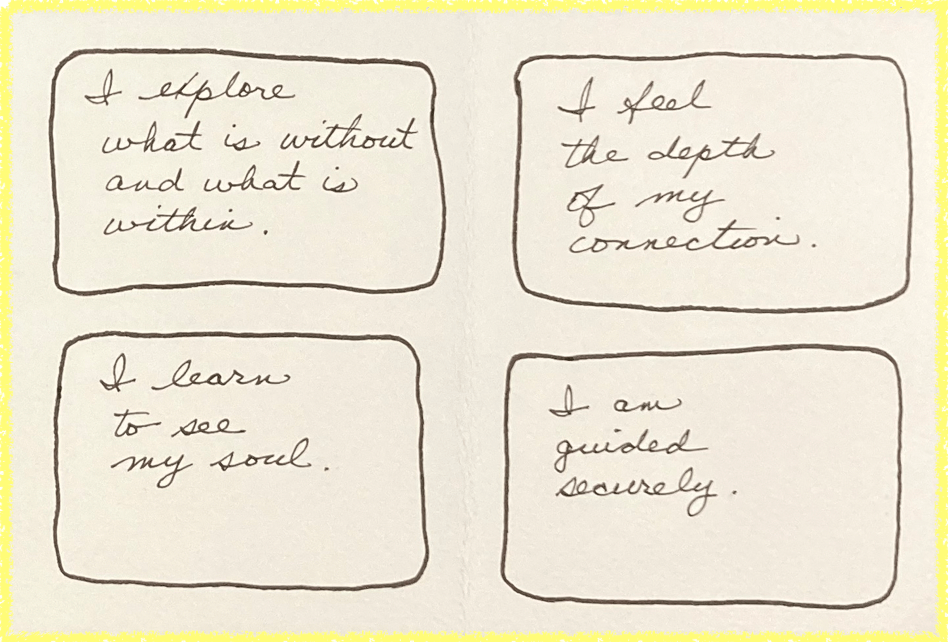 I explore
what is without
and what is
within.
I feel
the depth
of my
connection.
I learn
to see
my soul.
I am
guided
securely.